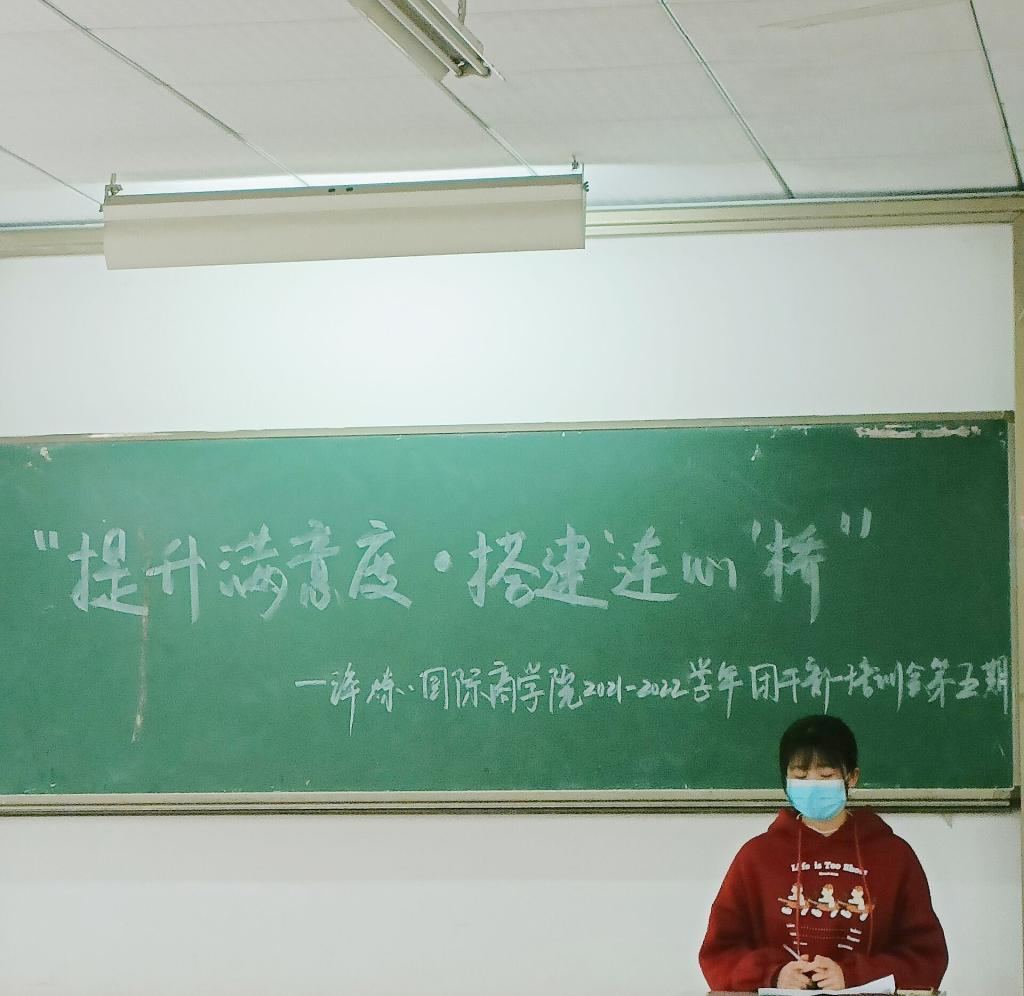 “提升满意度·搭建‘连心’桥”
—淬炼·国际商学院2021-2022学年团干部培训会第五期
Life is Too Short